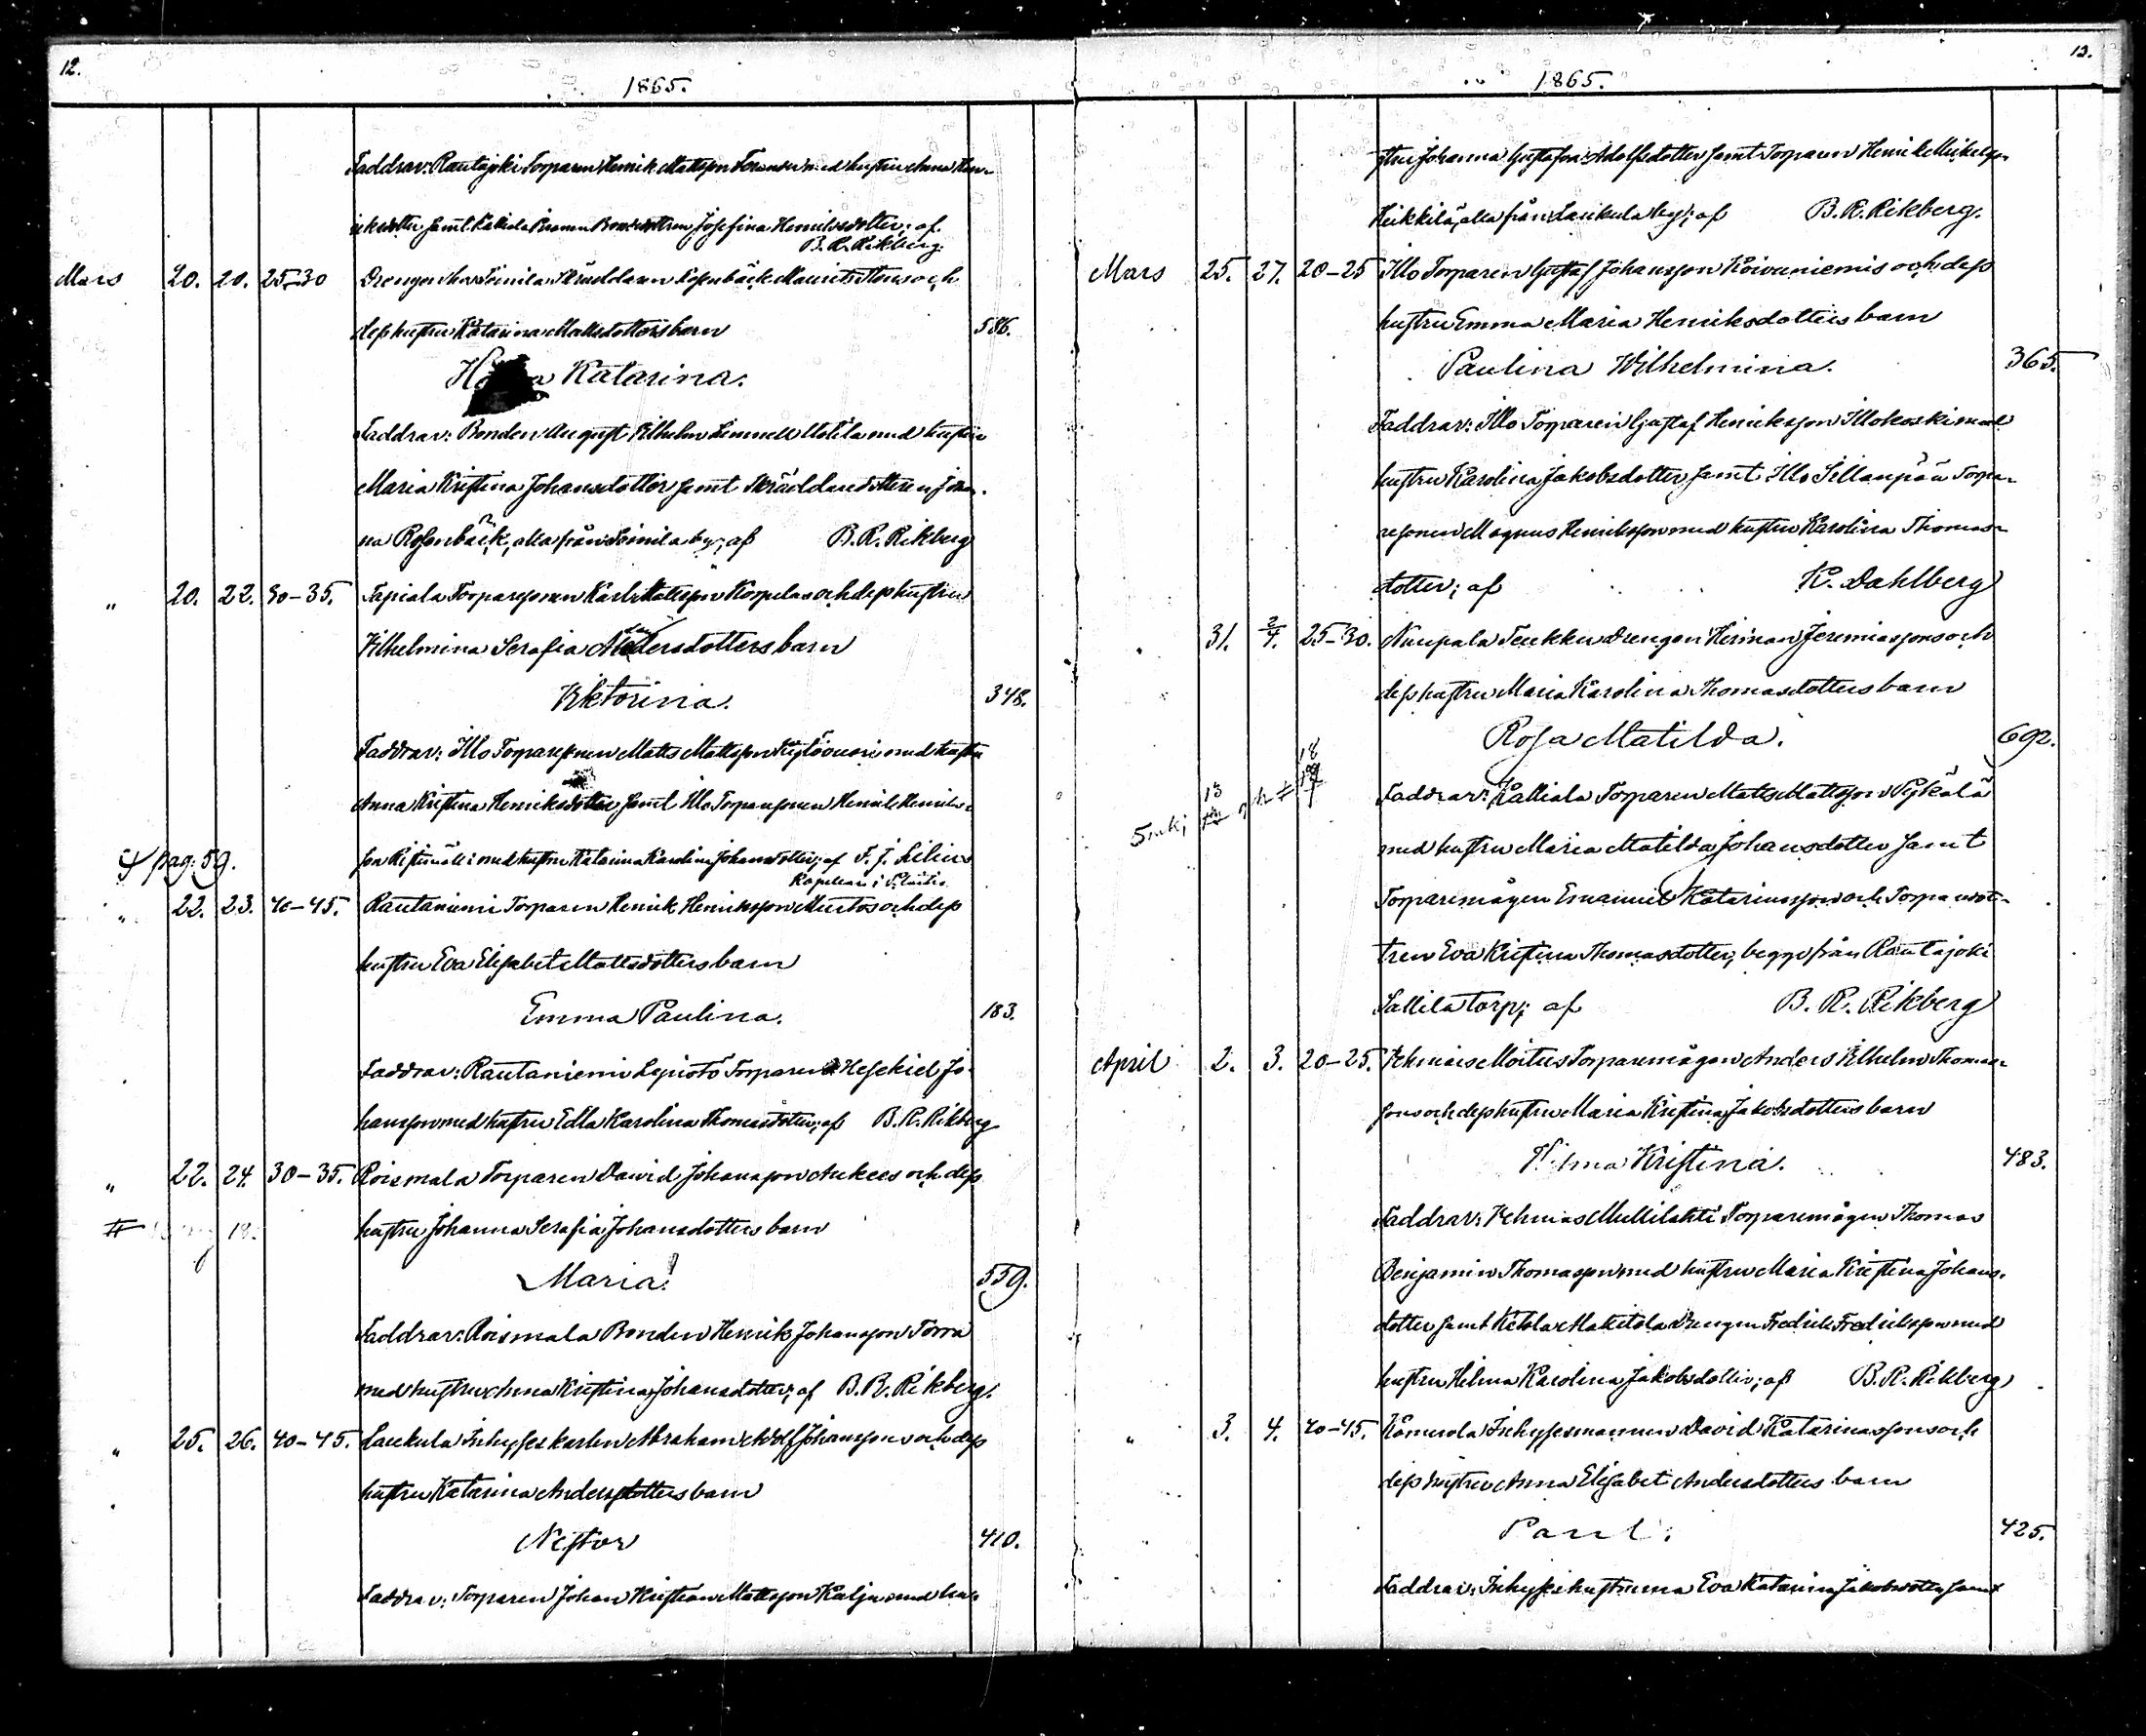 12.
1865.
Faddrar: Rautajoki Torparen Henrik Mattsson med hustru Anna Hen-
riksdotter samt Bondedottren Josefina Henriksdotter; af
B. R. Rikberg.
Mars 20. 20. 25-30 Drengen Skräddaren Rosenbäck Maurits och
dess hustru Katarina Mattsdotters barn 586.
Katarina.
Faddrar: Bonden August Vilhelm Mattila med hustru
Maria Kristina Johansdotter samt Skräddaredottren Johan-
na Rosenbäck, alla från by; af B. R. Rikberg
" 20. 22. 30-35. Tapiala Torparesonen Karl Mattsson Korpelas och dess hustru
Vilhelmina Serafia Andersdotters barn
Viktorina. 348.
Faddrar: Illo Torparesonen Matts Mattsson med hustru
Anna Kristina Henriksdotter samt Illo Torparesonen Henrik Henriks-
son med hustru Katarina Karolina Johansdotter; af F. J. Lilius
Kapellan i
pag: 59.
" 22. 23. 40-45. Rautaniemi Torparen Henrik Henriksson Murtos och dess
hustru Eva Elisabet Mattsdotters barn
Emma Paulina. 183.
Faddrar: Rautaniemi Lepistö Torparen Hesekiel Jo-
hansson med hustru Edla Karolina Thomasdotter; af B. R. Rikberg
" 22. 24. 30-35. Roismala Torparen David Johansson Aukees och dess
# 18. hustru Johanna Serafia Johansdotters barn
Maria. 559.
Faddrar: Roismala Bonden Henrik Johansson Torra
med hustru Anna Kristina Johansdotter; af B. R. Rikberg.
" 25. 26. 40-45. Laukula Inhyseskarlen Abraham Adolf Johanssons och dess
hustru Katarina Andersdotters barn
Nestor 410.
Faddrar: Torparen Johan Kristian Mattsson Kalju med hu-
13.
1865.
stru Johanna Gustafva Adolfsdotter samt Torparen Henrik Mickelsson
Heikkilä, alla från Laukula by; af B. R. Rikberg.
Mars 25. 27. 20-25 Illo Torparen Gustaf Johansson Koivuniemis och dess
hustru Emma Maria Henriksdotters barn
Paulina Wilhelmina. 365.
Faddrar: Illo Torparen Gustaf Henriksson Illokoski med
hustru Karolina Jakobsdotter samt Illo Sillanpää Torpa-
resonen Magnus Henriksson med hustru Karolina Thomas-
dotter; af K. Dahlberg
31. 2/4. 25-30. Nuupala Teukku Drengen Herman Jeremiassons och
dess hustru Maria Karolina Thomasdotters barn
Rosa Matilda. 692.
Faddrar: Kalliala Torparen Matts Mattsson Sykälä
med hustru Maria Matilda Johansdotter samt
Torparemågen Emanuel Katarinasson och Torparedot-
tren Eva Kristina Thomasdotter, begge från Rautajoki
Sallila torp; af B. R. Rikberg
April 2. 3. 20-25. Vehmais Moitus Torparemågen Anders Vilhelm Thomas-
sons och dess hustru Maria Kristina Jakobsdotters barn
Kristina. 483.
Faddrar: Vehmas Mullilahti Torparemågen Thomas
Benjamin Thomasson med hustru Maria Kristina Johans-
dotter samt Ketola Drengen Fredrik Fredriksson med
hustru Hilma Karolina Jakobsdotter; af B. R. Rikberg
" 3. 4. 40-45. Inhysesmannen David Katarinassons och
dess hustru Anna Elisabet Andersdotters barn
Paul. 425.
Faddrar: Inhyseshustrun Eva Katarina Jakobsdotter samt